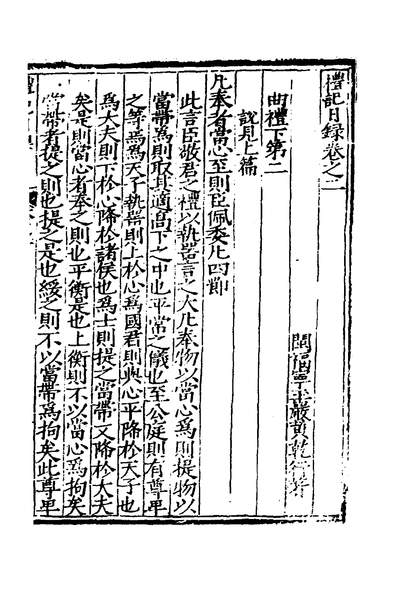 禮記日録卷之二
閩福寧壺巖黄乾行著
曲禮下第二
說見上篇
凡奉者當心至則臣佩委凡四節
此言臣敬君之禮以執器言之大凡奉物以當心為則提物以
當帶為則取其適高下之中也平常之儀也至公庭則有尊卑
之等焉為天子執器則上於心為國君則與心平降於天子也
為大夫則下於心降於諸侯也為士則提之當帶又降於大夫
矣是則當心者奉之則也平衡是也上衡則不以當心為拘矣
當帶者提之則也提之是也綏之則不以當帶為拘矣此尊卑